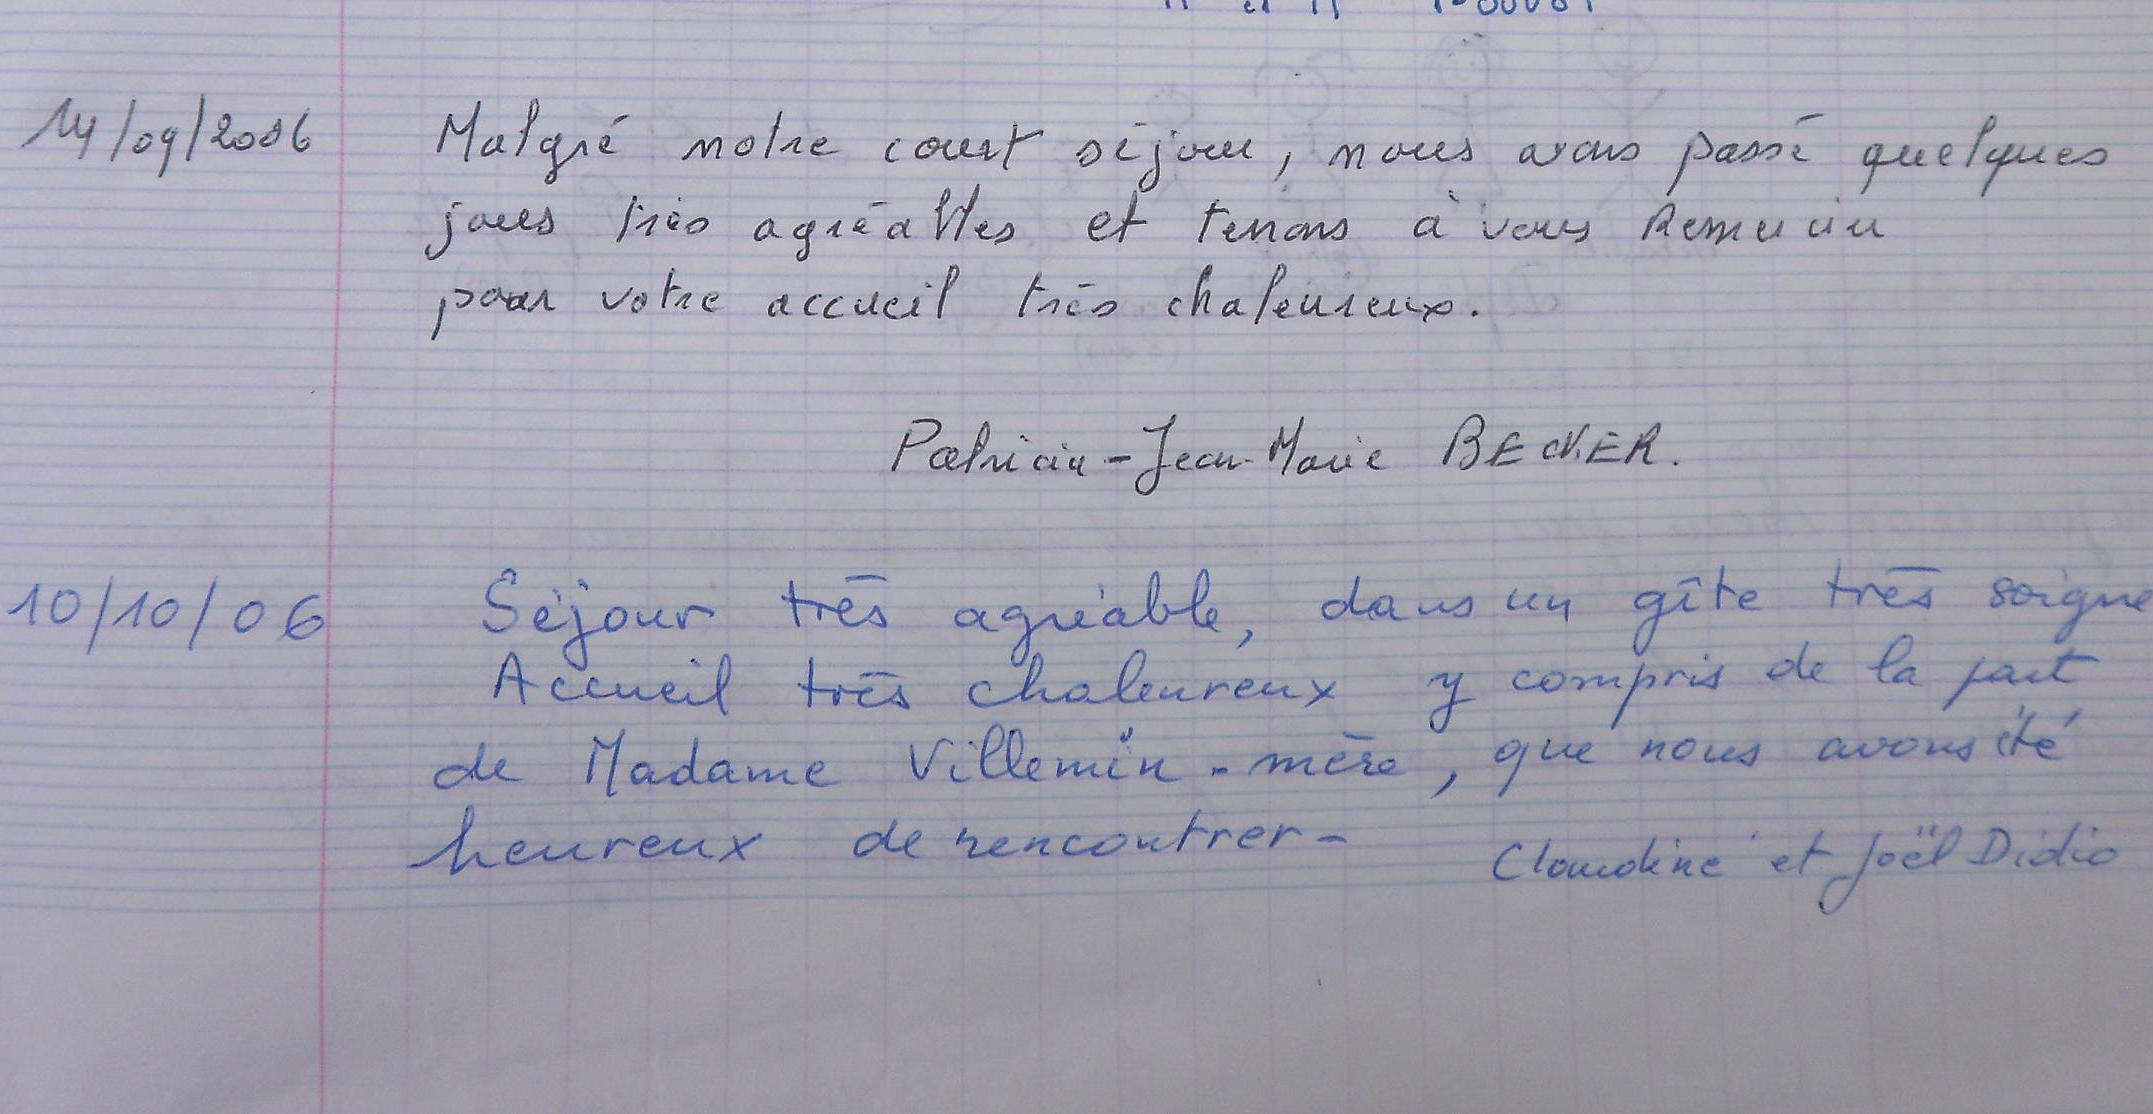 14/09/2006 Malgré notre court séjour, nous avons passé quelques
jours très agréables et tenons à vous Remercier
pour votre accueil très chaleureux.
Patricia-Jean-Marie BECKER.
10/10/06 Séjour très agréable, dans un gîte très soigné
Accueil très chaleureux y compris de la part
de Madame Villemin-mère, que nous avons été
heureux de rencontrer-
Claudine et Joël Didio